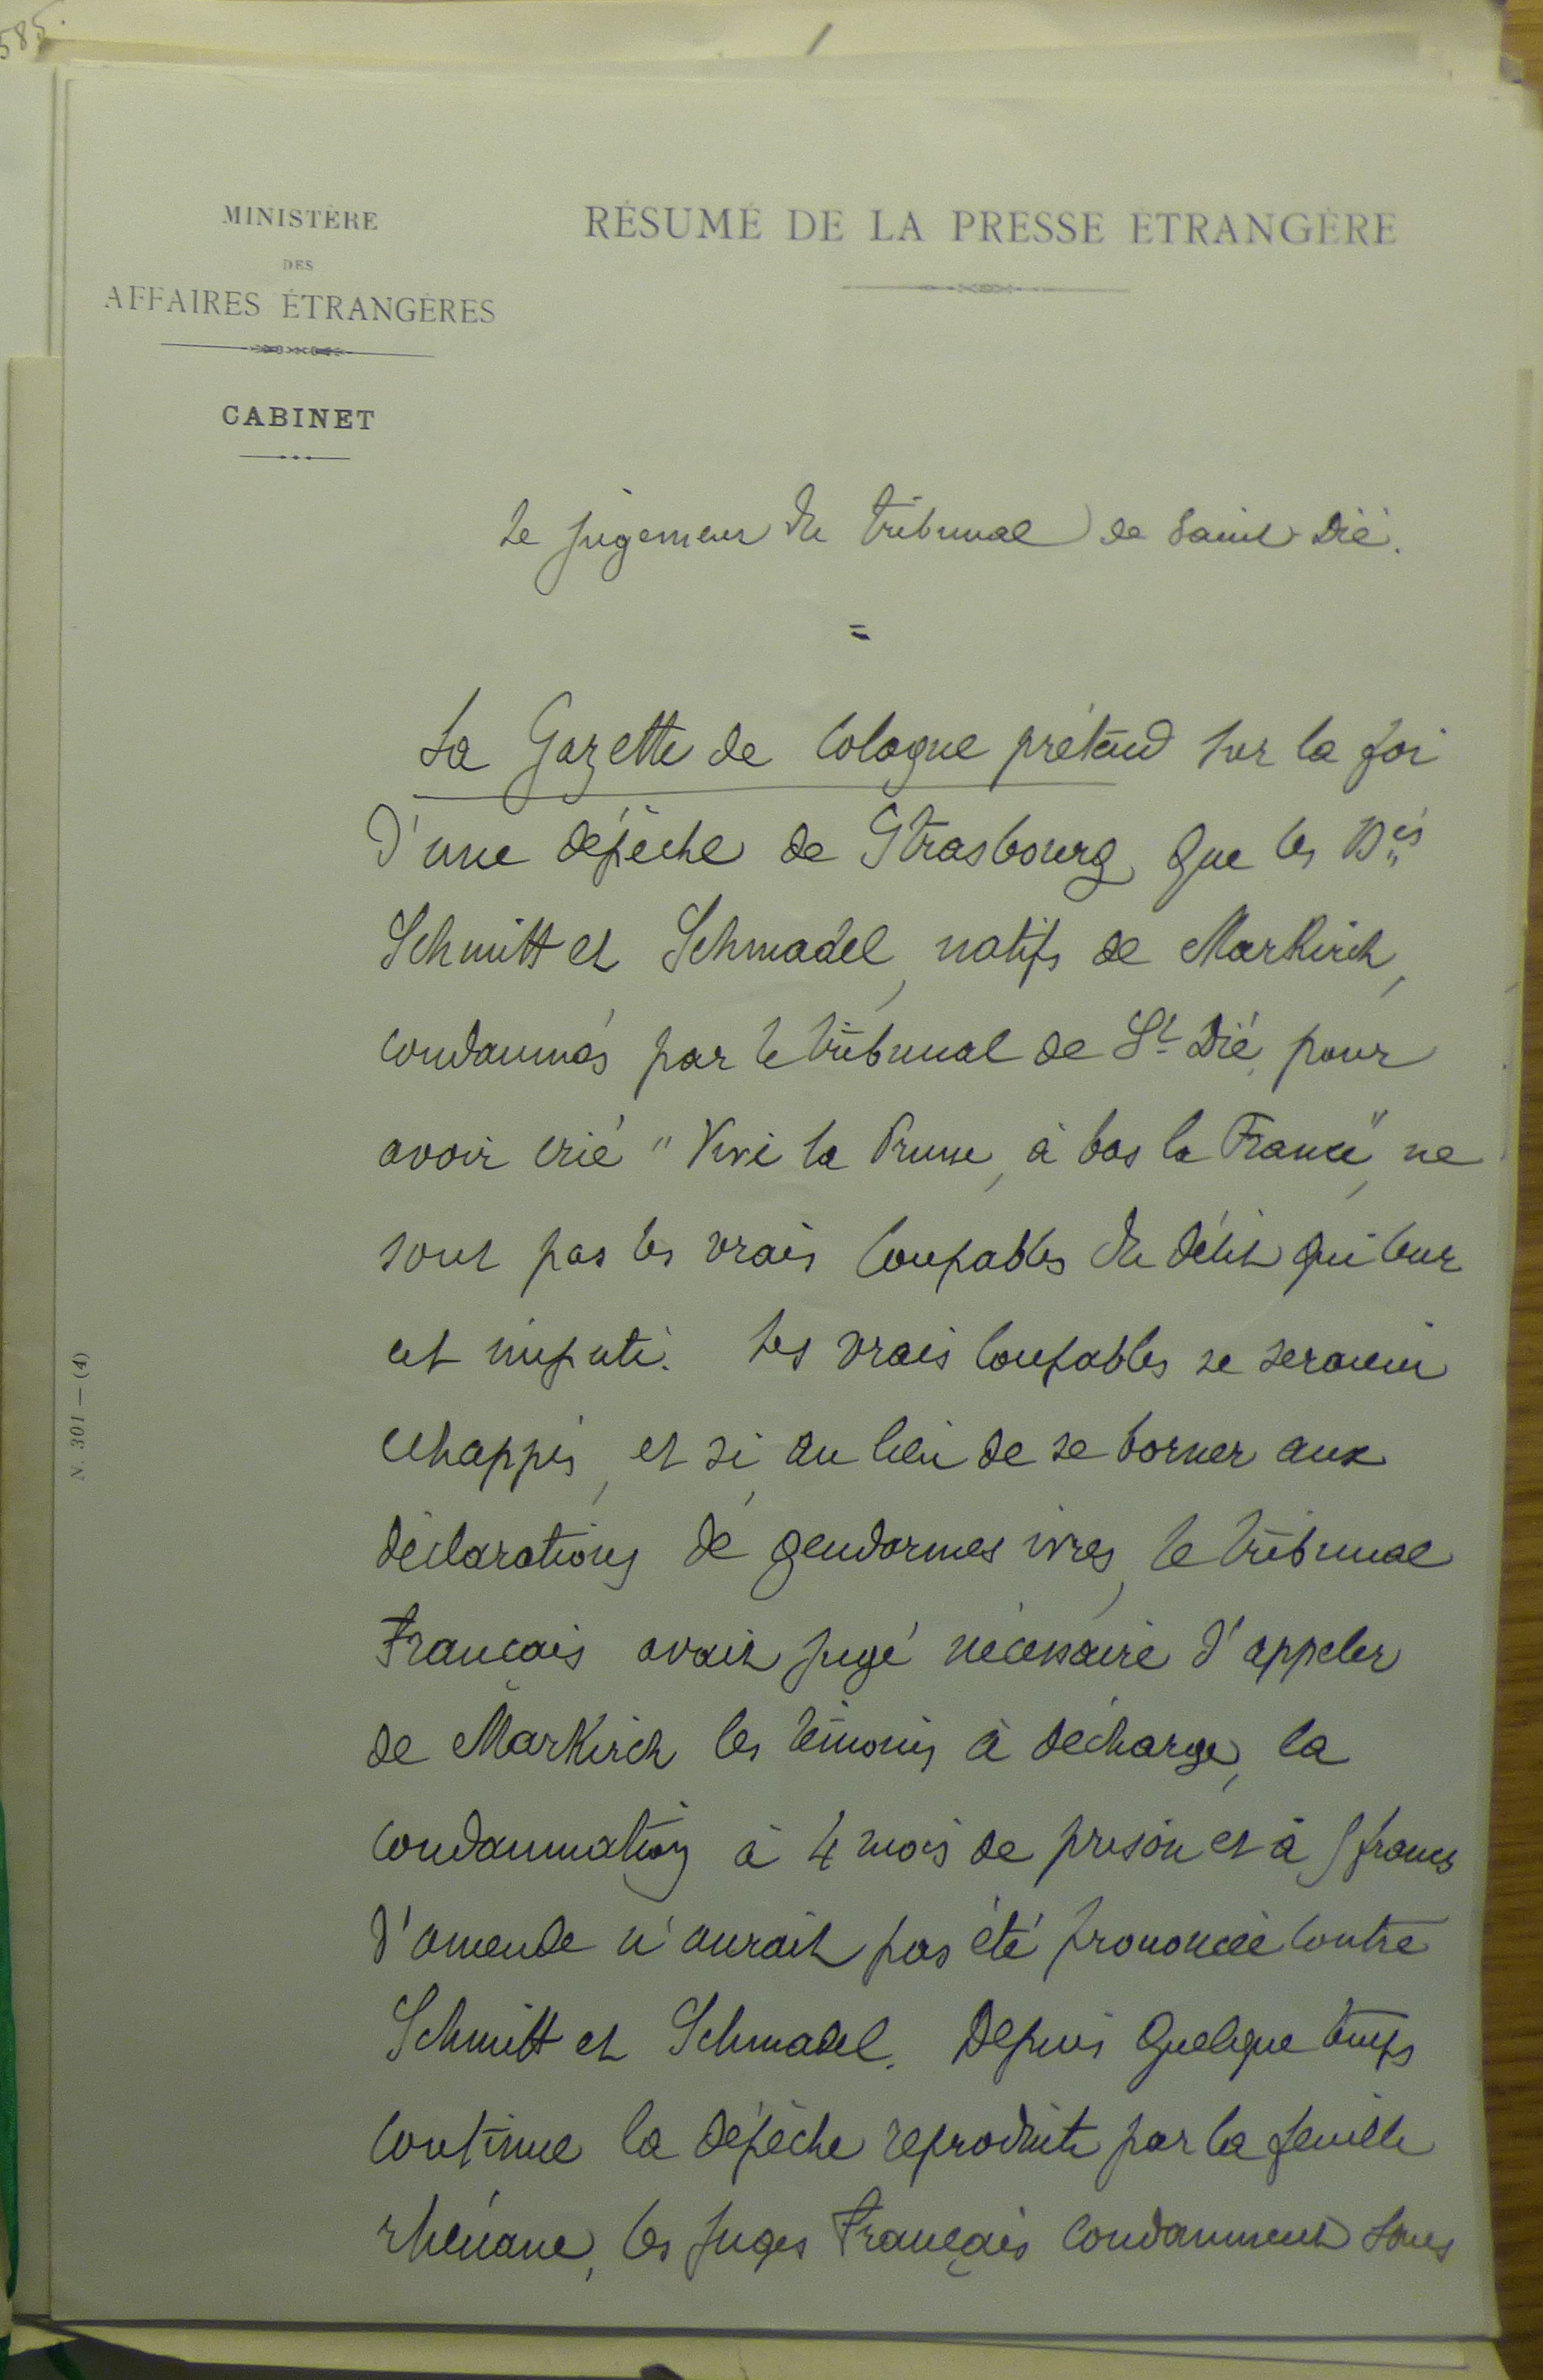 585.
MINISTÈRE
DES
AFFAIRES ÉTRANGÈRES
CABINET
RÉSUMÉ DE LA PRESSE ÉTRANGÈRE
Le Jugement du tribunal de Saint-Dié.
=
La Gazette de Cologne prétend sur la foi
d'une dépêche de Strasbourg que les
Schmitt et Schmadel, natifs de Markirch,
condamnés par le tribunal de St Dié, pour
avoir crié " Vive la Prusse, à bas la France", ne
sont pas les vrais coupables du délit qui leur
est imputé. Les vrais coupables se seraient
échappés, et si, au lieu de se borner aux
déclarations de gendarmes ivres, le tribunal
Français avait jugé nécessaire d'appeler
de Markirch les témoins à décharge, la
condamnation à 4 mois de prison et à 5 francs
d'amende n'aurait pas été prononcée contre
Schmitt et Schmadel. Depuis quelque temps
continue la dépêche reproduite par la feuille
rhénane, les juges Français condamnent sous
N. 301 — (4)